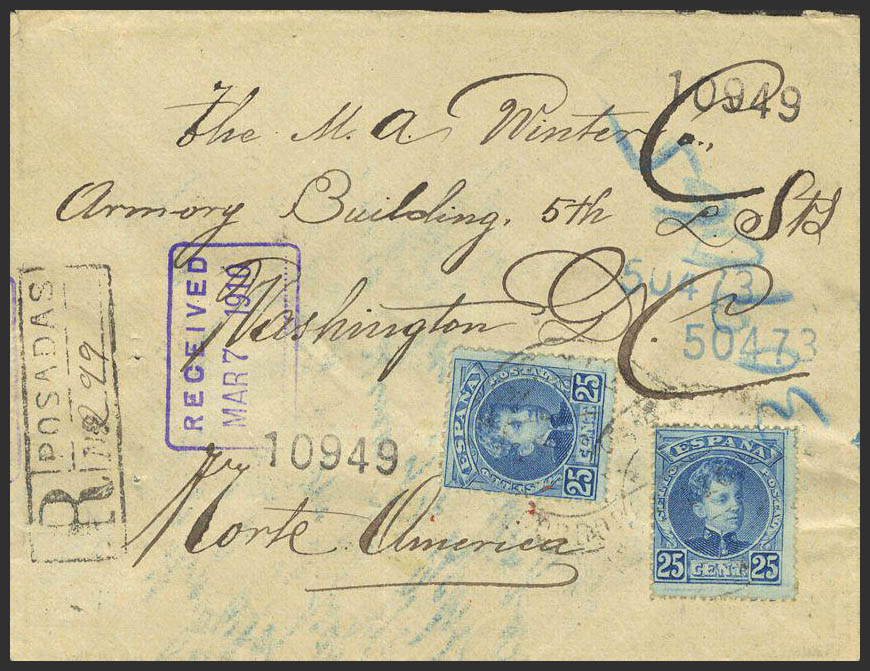 10949
The M. A. Winter Co.,
Armory Building, 5th L. Sts
50473
Washington D. C.
50473
RECEIVED
MAR 7 1910
POSADAS
R
No 299
10949
Norte America
ESPAÑA
POSTAL
25 CENTS 25
ESPAÑA
SELLO POSTAL
25 CENT 25